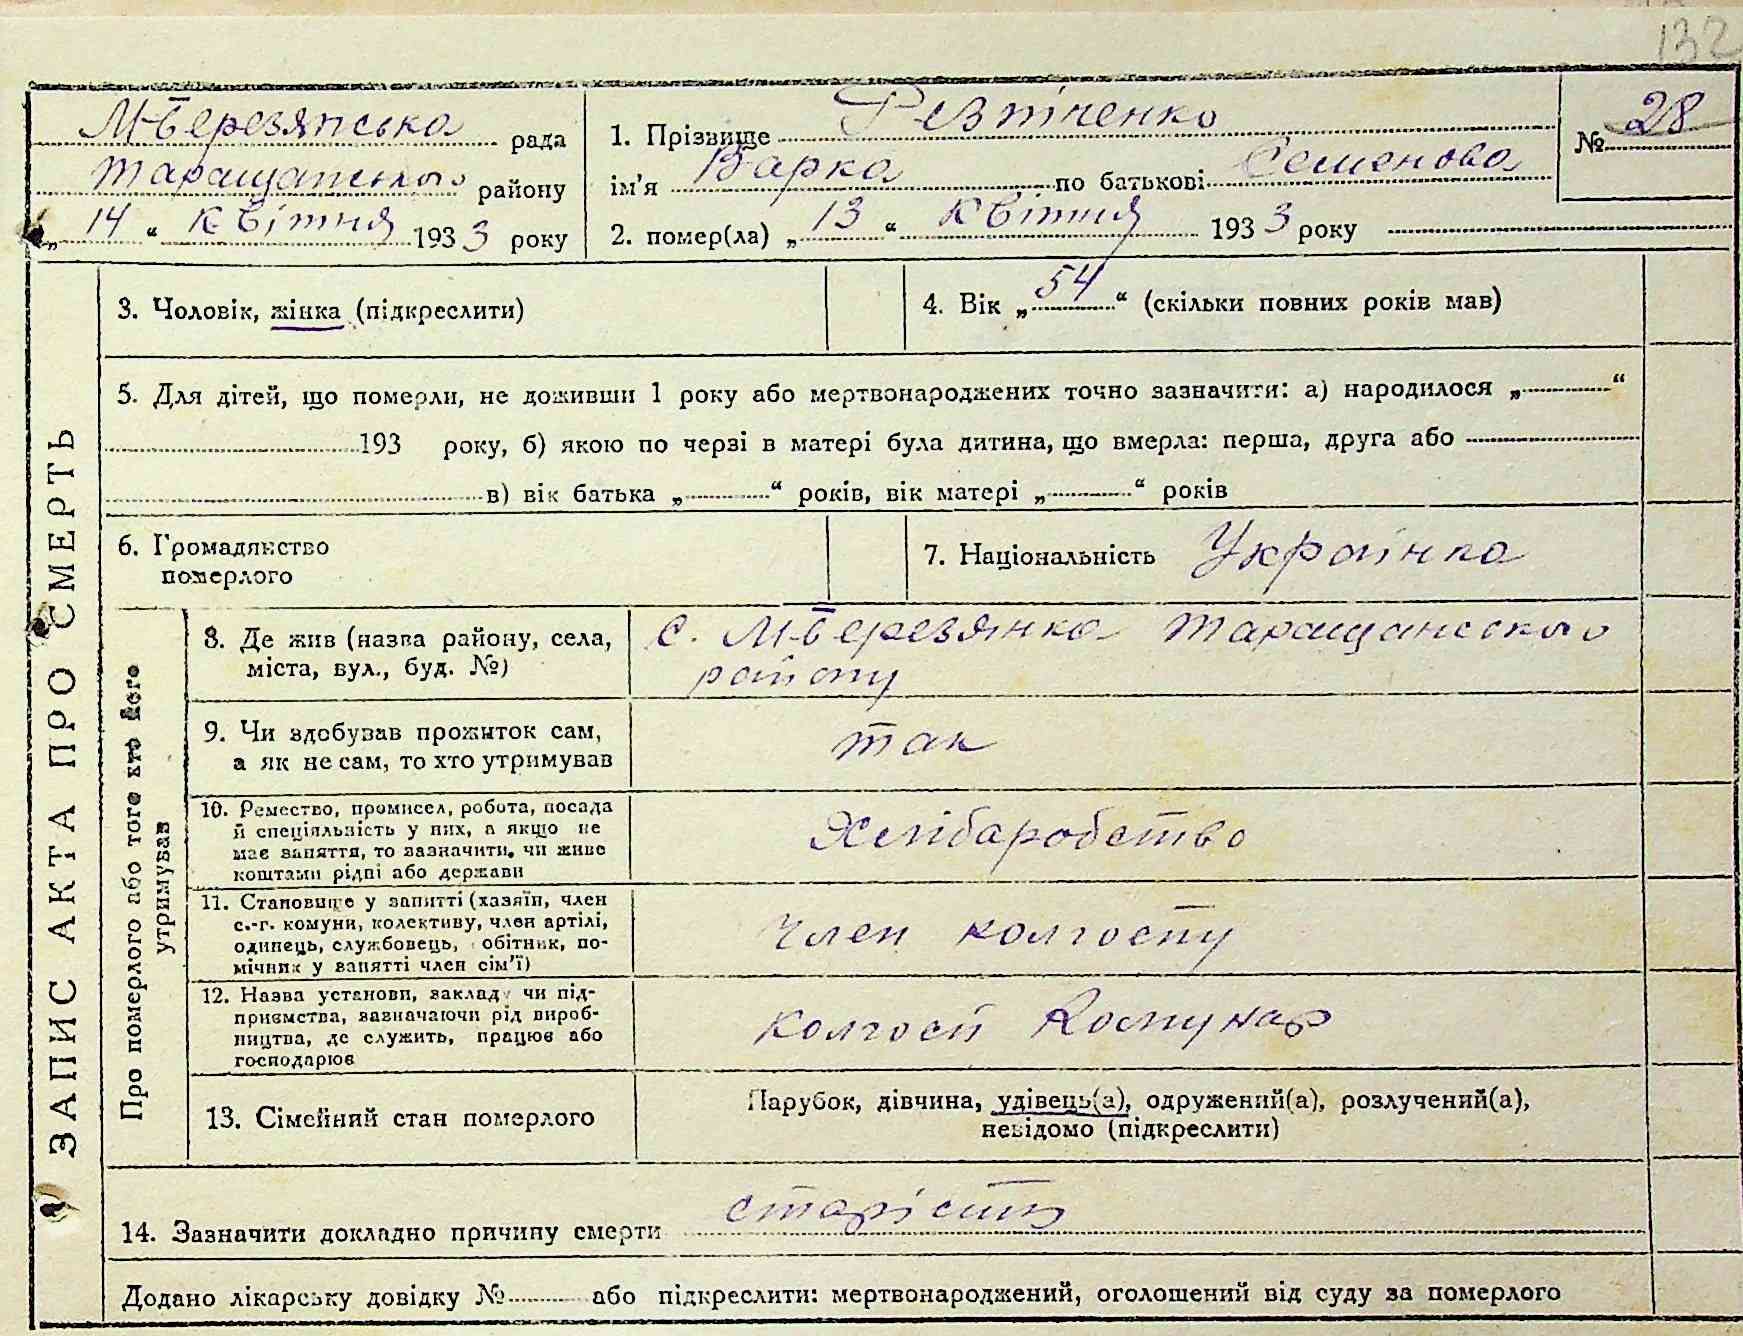 132
М-Березянська рада
Таращанського району
„14“ квітня 1933 року
1. Прізвище Резніченко
ім'я Варка по батькові Семенова
2. помер(ла) „13“ квітня 1933 року
№ 28
ЗАПИС АКТА ПРО СМЕРТЬ
3. Чоловік, жінка (підкреслити)
4. Вік „54“ (скільки повних років мав)
5. Для дітей, що померли, не доживши 1 року або мертвонароджених точно зазначити: а) народилося „ “
193 року, б) якою по черзі в матері була дитина, що вмерла: перша, друга або
в) вік батька „ “ років, вік матері „ “ років
6. Громадянство
померлого
7. Національність Українка
Про померлого або того хто його
утримував
8. Де жив (назва району, села,
міста, вул., буд. №)
с. М-Березянка Таращанського
району
9. Чи здобував прожиток сам,
а як не сам, то хто утримував
так
10. Ремество, промисел, робота, посада
й спеціяльність у них, а якщо не
має заняття, то зазначити, чи живе
коштами рідні або держави
Хлібаробство
11. Становище у занятті (хазяїн, член
с.-г. комуни, колективу, член артілі,
одинець, службовець, обітник, по-
мічник у занятті член сім'ї)
член колгоспу
12. Назва установи, закладу чи під-
приємства, зазначаючи рід вироб-
ництва, де служить, працює або
господарює
колгосп Комунар
13. Сімейний стан померлого
Парубок, дівчина, удівець(а), одружений(а), розлучений(а),
невідомо (підкреслити)
14. Зазначити докладно причину смерти старість
Додано лікарську довідку № або підкреслити: мертвонароджений, оголошений від суду за померлого